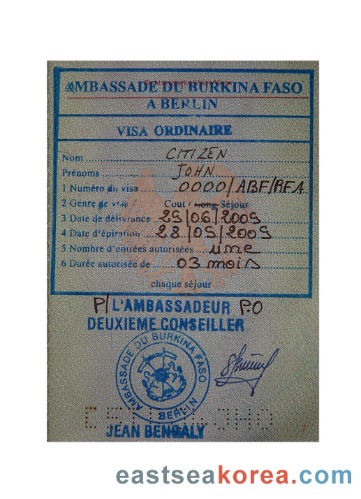 AMBASSADE DU BURKINA FASO
A BERLIN
VISA ORDINAIRE
Nom CITIZEN
Prénoms JOHN
1 Numéro du visa 0000/ABF/RFA
2 Genre de visa Court Long Séjour
3 Date de délivrance 29/06/2009
4 Date d'épiration 28/09/2009
5 Nombre d'entrées autorisées une
6 Durée autorisée de 03 mois
chaque séjour
P/L'AMBASSADEUR P.O
DEUXIEME CONSEILLER
AMBASSADE DU BURKINA FASO
BERLIN
JEAN BENGALY
eastseakorea.com